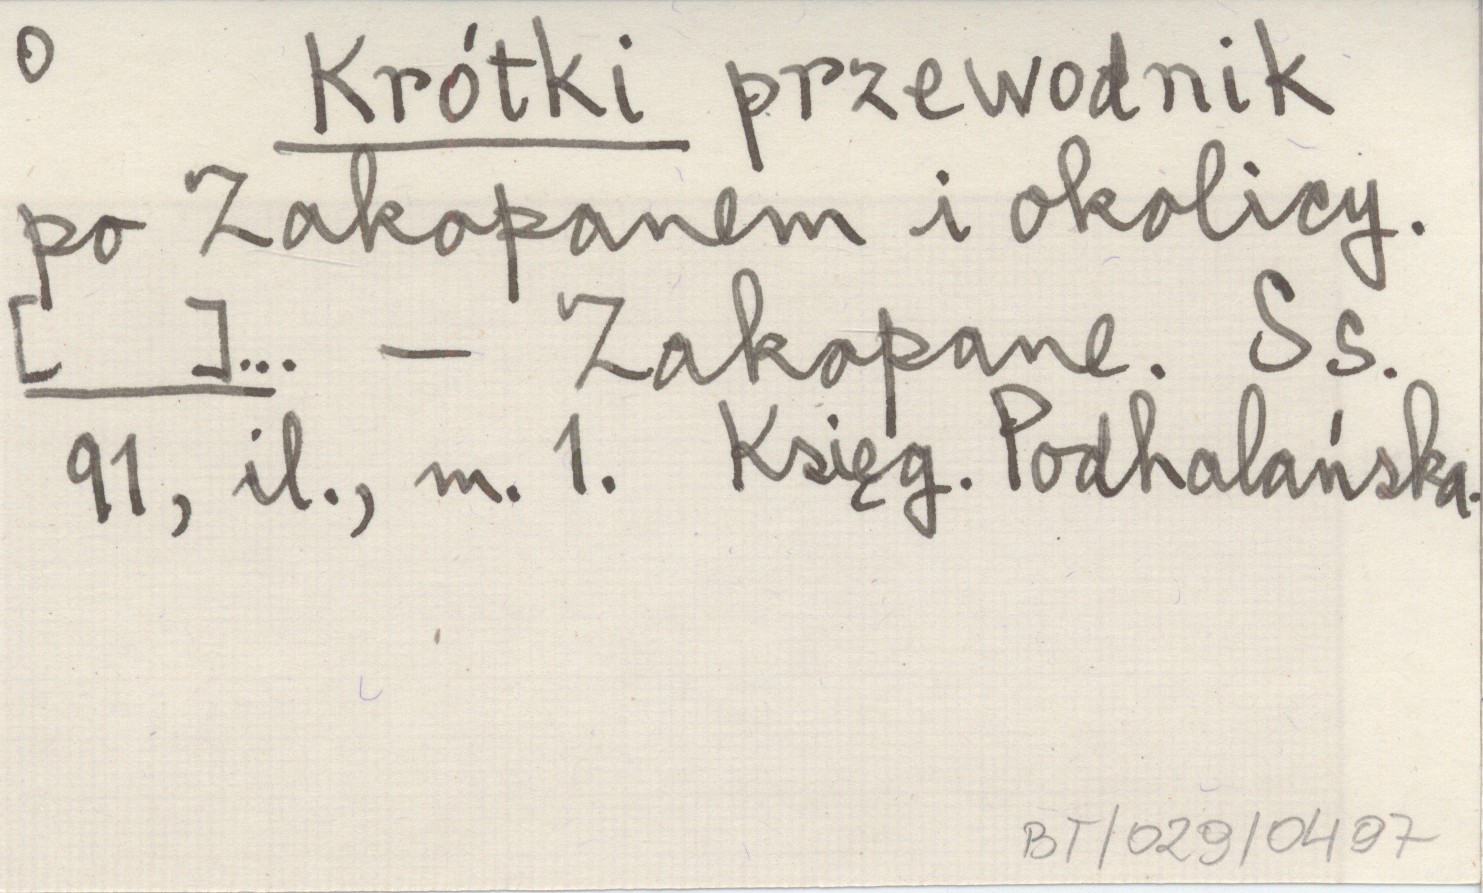 0
Krótki przewodnik
po Zakopanem i okolicy.
[ ]... — Zakopane. Ss.
91, il., m. 1. Księg. Podhalańska.
BT/029/0497